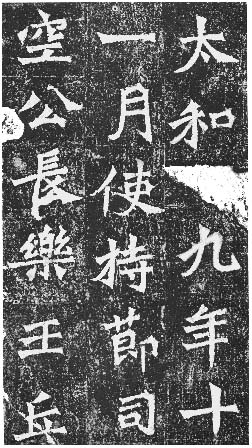 太和九年十
一月使持節司
空公長樂王丘